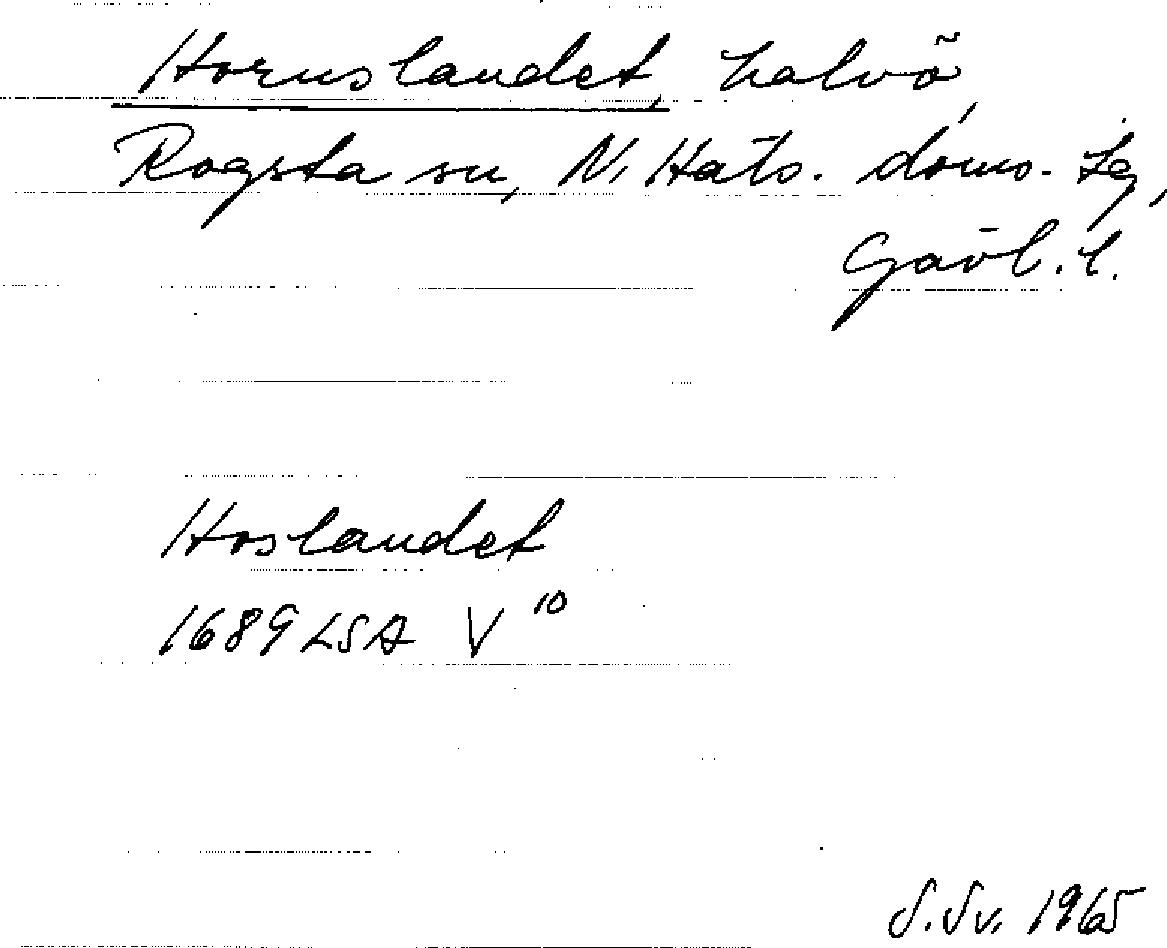 Hornslandet, halvö,
Rogsta sn, N. Häls. doms. tg,
Gävl. l.
Hoslandet
1689 LSA V 10
S.Sv. 1965